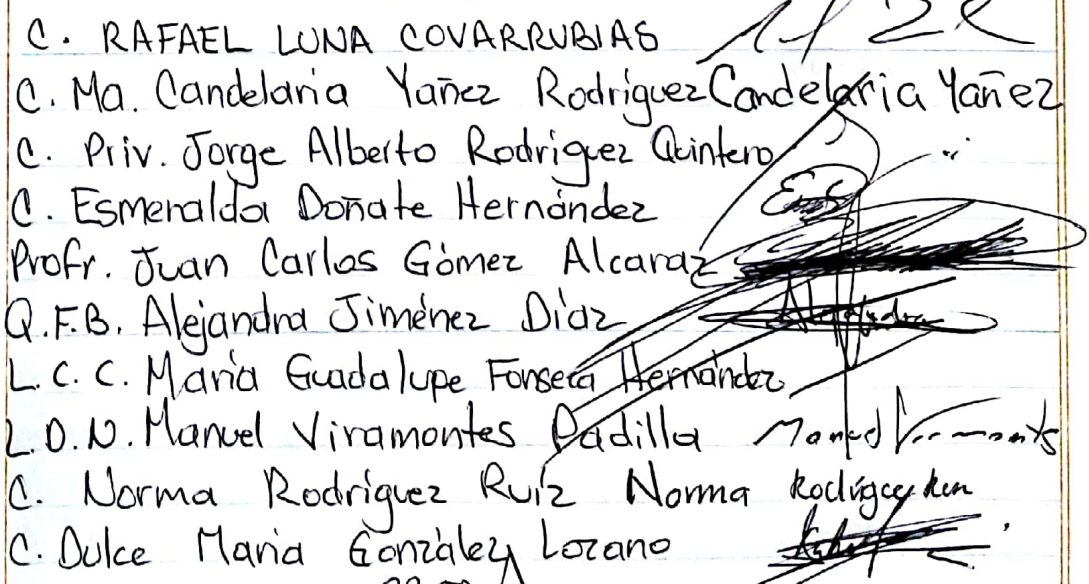 C. RAFAEL LUNA COVARRUBIAS
C. Ma. Candelaria Yañez Rodríguez Candelaria Yañez
C. Priv. Jorge Alberto Rodríguez Quintero
C. Esmeralda Doñate Hernández
Profr. Juan Carlos Gómez Alcaraz
Q.F.B. Alejandra Jiménez Díaz Alejandra
L.C.C. María Guadalupe Fonseca Hernández
L.D.N. Manuel Viramontes Padilla Manuel Viramontes
C. Norma Rodríguez Ruíz Norma Rodríguez
C. Dulce María González Lozano